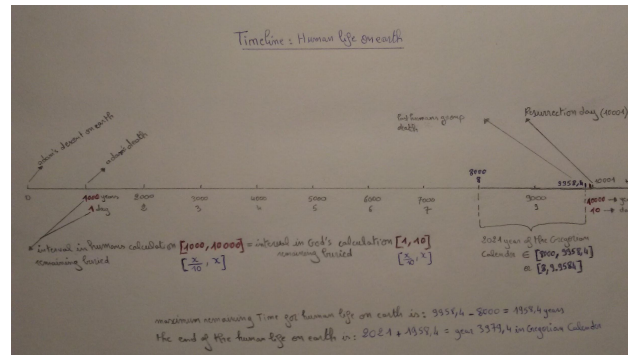 Timeline: Human life on earth
Resurrection day (10001)
adam's descent on earth
adam's death
humans group
death
8000
8
9958,4
10001
1000 years
2000
3000
4000
5000
6000
7000
9000
10000 → 
1 day
2
3
4
5
6
7
9
10 → 
interval in humans calculation [1000, 10000] = interval in God's calculation [1, 10]
remaining buried [x/10, x] remaining buried [x/10, x]
2021 year of the Gregorian
Calendar ∈ [8000, 9958,4]
or [8, 9.9584]
maximum remaining time for human life on earth is: 9958,4 - 8000 = 1958,4 years
the end of the human life on earth is: 2021 + 1958,4 = year 3979,4 in Gregorian Calender